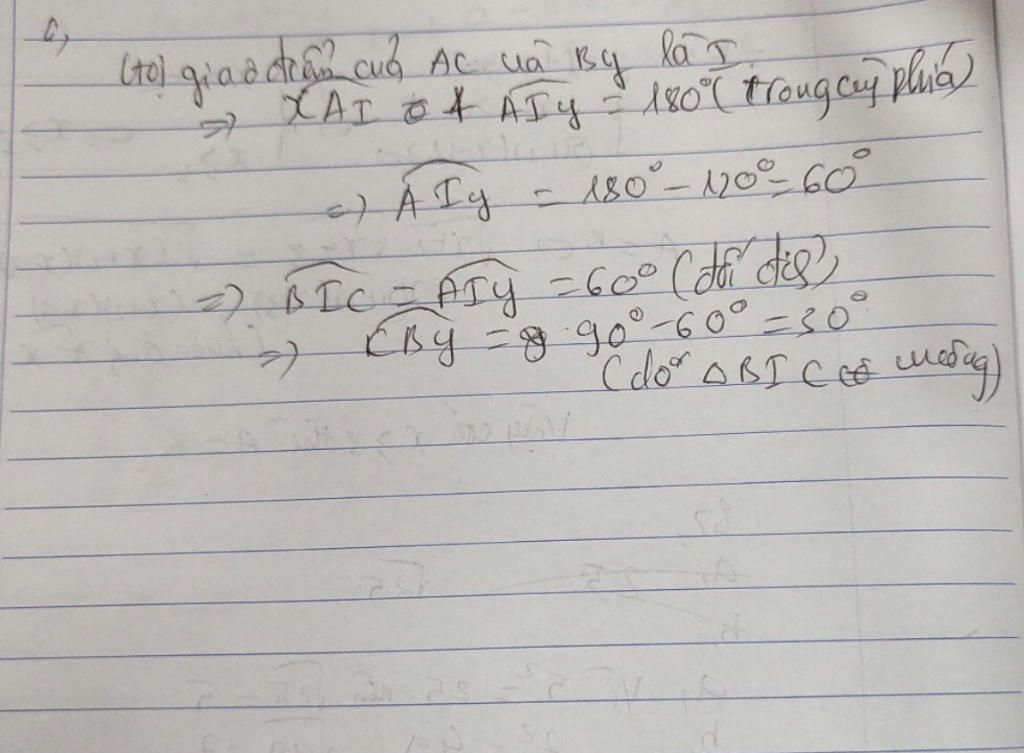 c,
Gọi giao điểm của AC và By là I.
=> xAI + AIy = 180° (trong cùng phía)
=> AIy = 180° - 120° = 60°
=> BIC = AIy = 60° (đối đỉnh)
=> CBy = 90° - 60° = 30°
(do △BIC vuông)